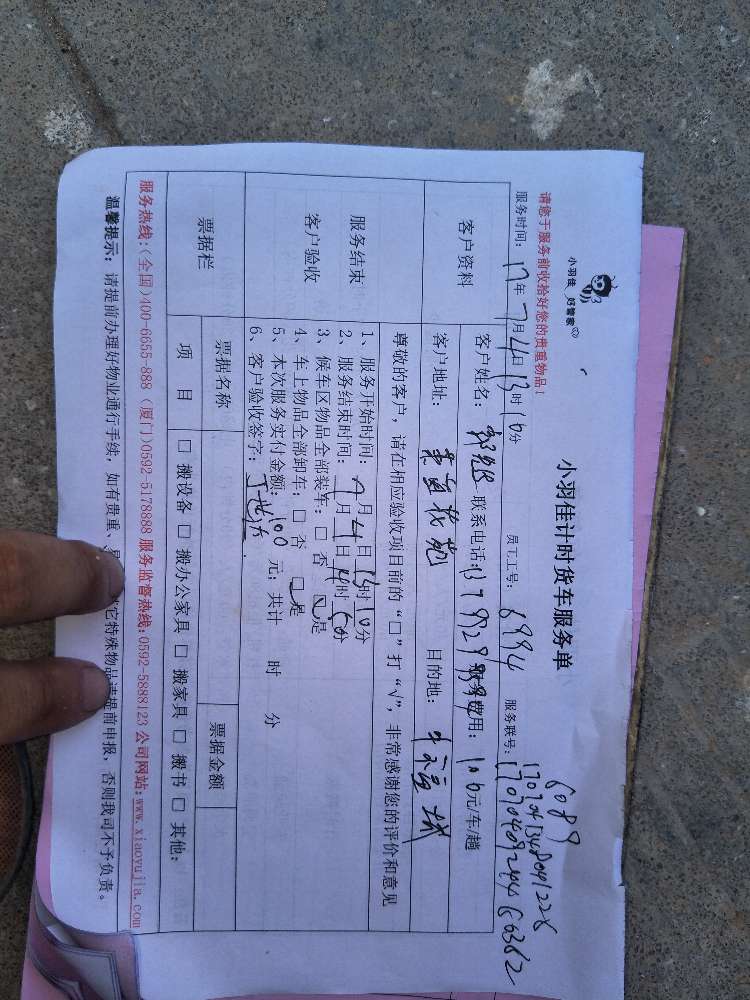 小羽佳 好管家
小羽佳计时货车服务单
请您于服务前收拾好您的贵重物品！
6089
服务时间：17年7月4日13时10分 员工工号：6994 服务联号：
客户资料
客户姓名： 联系电话： 服务费用：100元/车/趟
客户地址： 花苑 目的地：
服务结束
客户验收
尊敬的客户，请在相应验收项目前的“□”打“√”，非常感谢您的评价和意见
1、服务开始时间：7月4日13时10分
2、服务结束时间：7月4日14时50分
3、候车区物品全部装车：□ 否 □ 是
4、车上物品全部卸车：□ 否 □ 是
5、本次服务实付金额：100元；共计 时 分
6、客户验收签字：
票据栏
票据名称 票据金额
项 目 □ 搬设备 □ 搬办公家具 □ 搬家具 □ 搬书 □ 其他：
服务热线：(全国)400-6655-888 (厦门)0592-5178888 服务监督热线：0592-5888123 公司网站：www.xiaoyujia.com
温馨提示：请提前办理好物业通行手续，如有贵重、 它特殊物品请提前申报，否则我司不予负责。